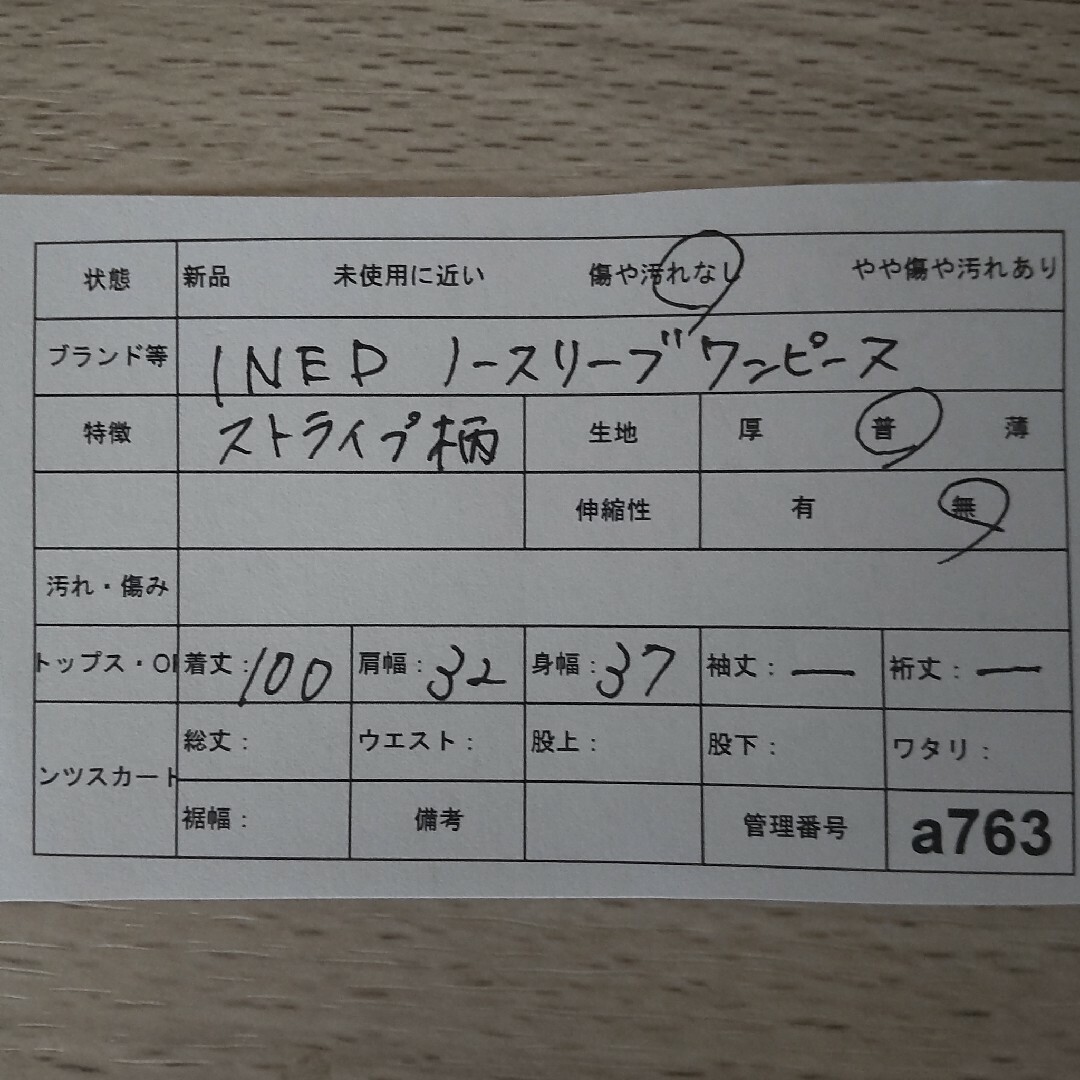 状態 新品 未使用に近い 傷や汚れなし やや傷や汚れあり
ブランド等 INED ノースリーブワンピース
特徴 ストライプ柄 生地 厚 普 薄
伸縮性 有 無
汚れ・傷み
トップス・O 着丈:100 肩幅:32 身幅:37 袖丈:ー 裄丈:ー
ンツスカート 総丈: ウエスト: 股上: 股下: ワタリ:
裾幅: 備考 管理番号 a763